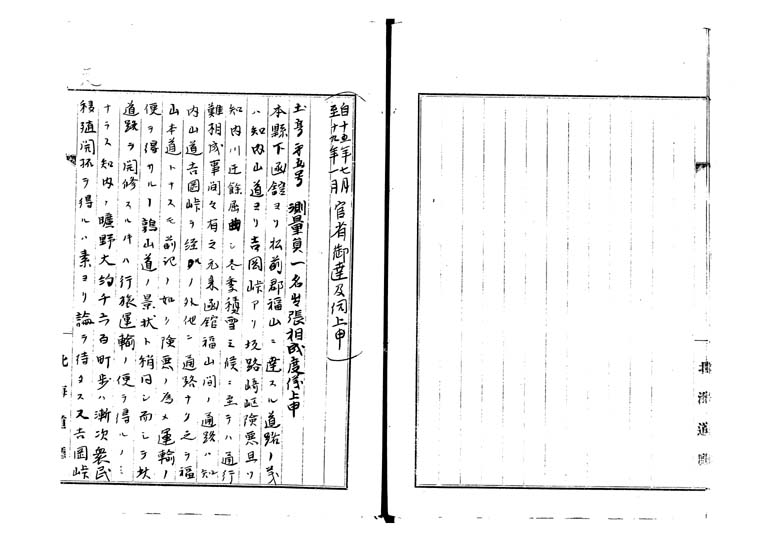 自十五年七月
至十九年一月 官省御達及伺上申
土号第五号 測量員一名出張相成度儀上申
本縣下函館ヨリ松前郡福山ニ達スル道路ノ義
ハ知内山道ヨリ吉岡峠アリ坂路崎嶇険悪且ツ
知内川迂餘屈曲シ冬季積雪ノ候ニ至テハ通行
難相成事間々有之元来函館福山間ノ通路ハ知
内山道吉岡峠ヲ経ルノ外他ニ通路ナク之ヲ福
山本道トナスモ前記ノ如ク険悪ノ為メ運輸ノ
便ヲ得サル
山道ノ景状ト稍同シ而シテ該
道路ヲ開修スルトキハ行旅運輸ノ便ヲ得ルノミ
ナラス知内ノ曠野大約千六百町歩ハ漸次衆民
移殖開拓ヲ得ルハ素ヨリ論ヲ待タス又吉岡峠
北海道廳
北海道廳